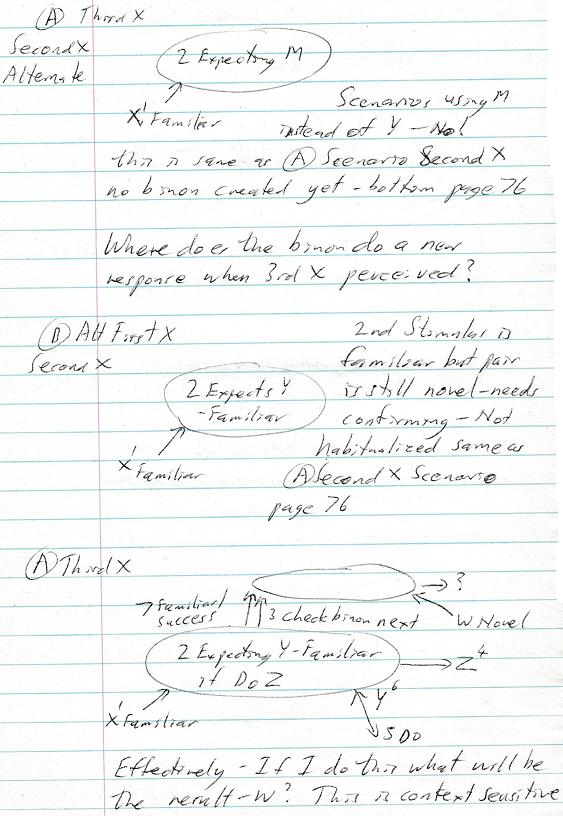 (A) Third X
Second X
Alternate
2 Expecting M
X¹ Familiar
Scenarios using M
instead of Y - No!
this is same as (A) Scenario Second X
no binon created yet - bottom page 76
Where does the binon do a new
response when 3rd X perceived?
(B) Alt First X
Second X
2 Expects Y
- Familiar
X¹ Familiar
2nd Stimulus is
familiar but pair
is still novel - needs
confirming - Not
habitualized same as
(A) Second X Scenario
page 76
(A) Third X
→ ?
7 Familiar/
success
3 check binon next
W Novel
2 Expecting Y - Familiar
if Do Z
→ Z⁴
X¹ Familiar
Y⁶
5 DO
Effectively - If I do this what will be
the result - W? This is context sensitive